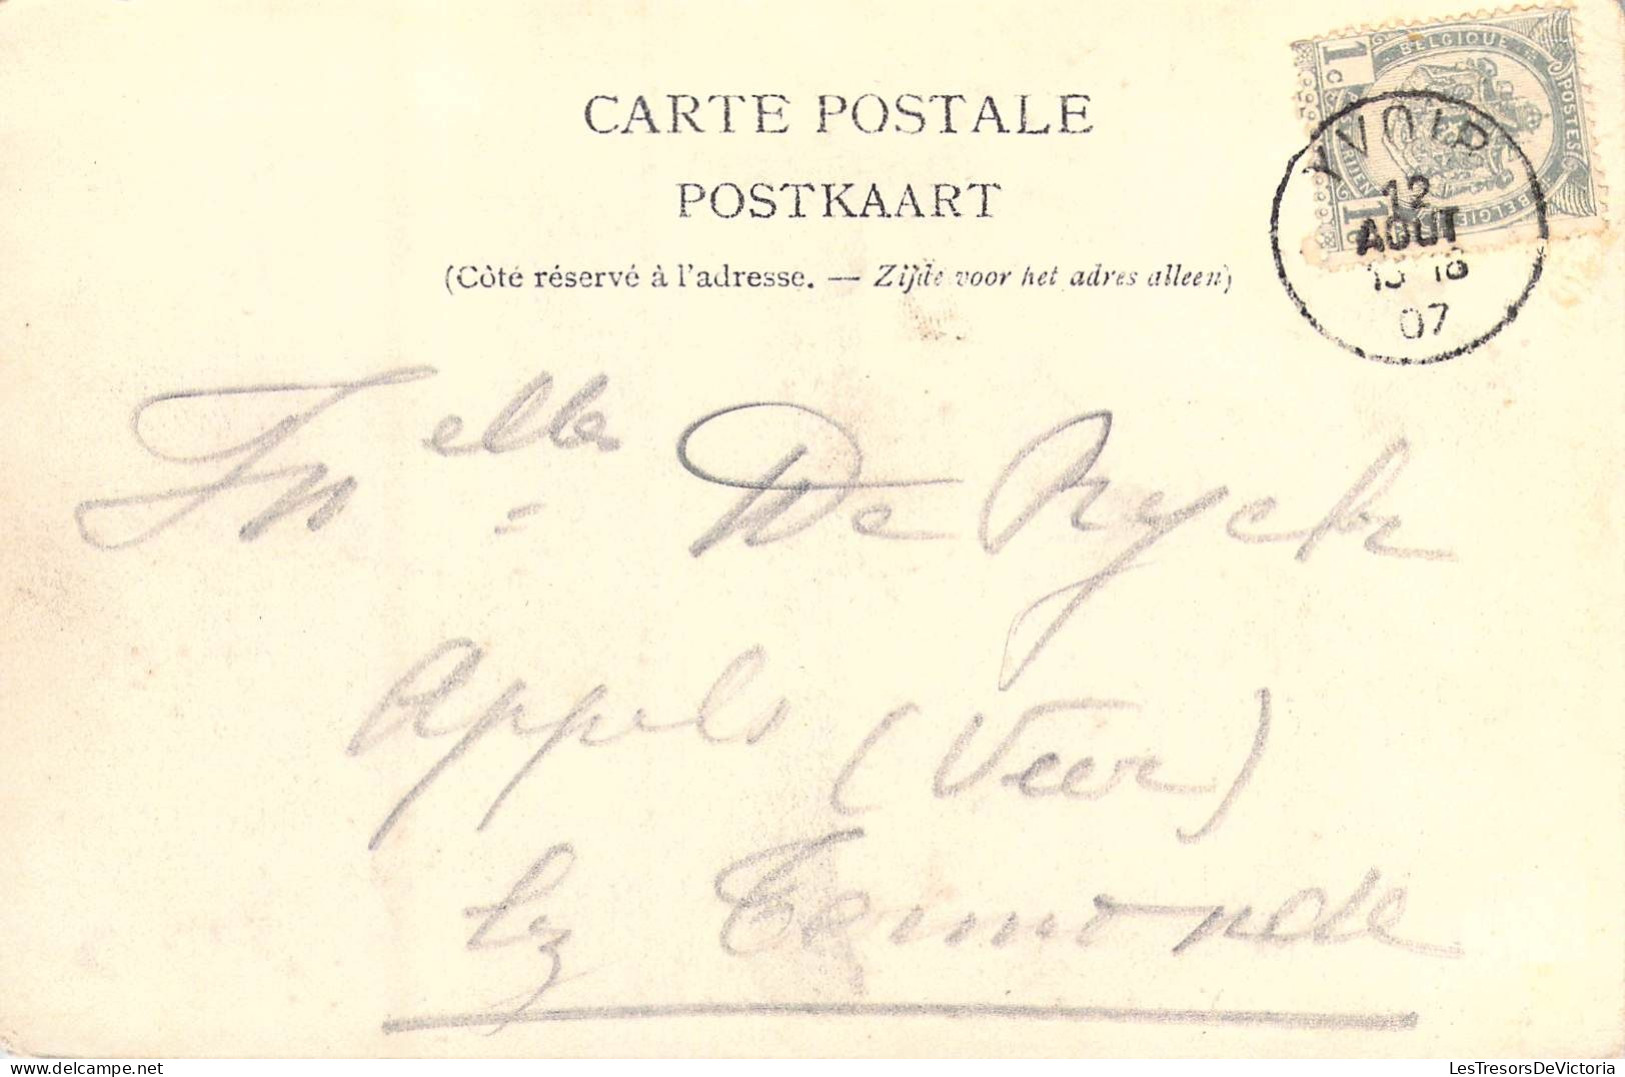 CARTE POSTALE
POSTKAART
(Côté réservé à l'adresse. — Zijde voor het adres alleen)
BELGIQUE
POSTES
1 c
BELGIE
1 c
YVOIR
12
AOUT
07
elles De Rycke
Appels (Veer)
bz Termonde
LesTresorsDeVictoria